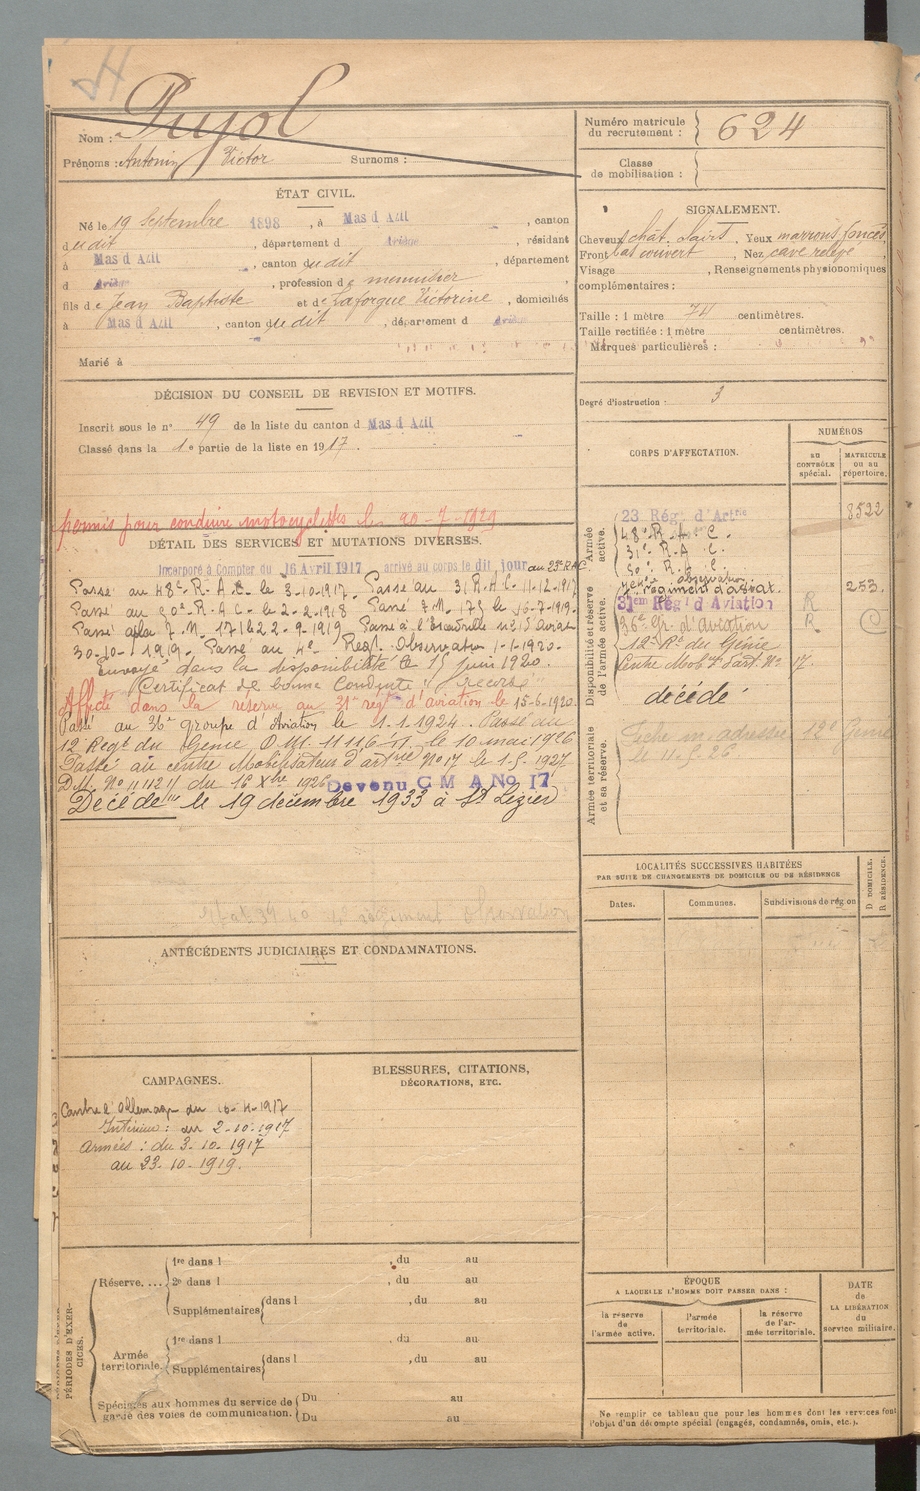 Nom : Pujol
Prénoms : Antonin Victor Surnoms :
ÉTAT CIVIL.
Né le 19 Septembre 1898, à Mas d Azil, canton
dudit, département d Ariège, résidant
à Mas d Azil, canton dudit, département
d Ariège, profession de menuisier
fils de Jean Baptiste et de Laforgue Victorine, domiciliés
à Mas d Azil, canton dudit, département d Ariège
Marié à
DÉCISION DU CONSEIL DE REVISION ET MOTIFS.
Inscrit sous le n° 49 de la liste du canton d Mas d Azil
Classé dans la 1e partie de la liste en 1917.
permis pour conduire motocyclettes le 20-7-1929
DÉTAIL DES SERVICES ET MUTATIONS DIVERSES.
Incorporé à Compter du 16 Avril 1917 arrivé au corps le dit jour au 23e RAC
Passé au 48e R.A.C. le 3-10-1917. Passé au 31 R.A.C. 11-12-1917
Passé au 50e R.A.C le 2-2-1918 Passé 7.M. 175 le 16-7-1919.
Passé 7.M. 171 le 22-9-1919 Passé à l'Escadrille n° 15 Aviat
30-10-1919. Passé au 4e Regt. Observation 1-1-1920.
Envoyé dans la disponibilité le 15 juin 1920.
Certificat de bonne Conduite "accordé"
Affecté dans la réserve au 31e régt d'aviation le 15-6-1920.
Passé au 36e groupe d'Aviation le 1.1.1924. Passé au
12 Regt du Génie O.M. 11116 le 10 mai 1926
Passé au centre Mobilisateur d'artrie No 17 le 1.5.1927
D.M. No 11112 11 du 16 Xbre 1926 Devenu C M A No 17
Décédé le 19 décembre 1933 à St Lizier
4e régiment observation
ANTÉCÉDENTS JUDICIAIRES ET CONDAMNATIONS.
CAMPAGNES.
Contre l'Allemagne du 16-4-1917
Intérieur : au 2-10-1917
Armées : du 3-10-1917
au 23-10-1919.
BLESSURES, CITATIONS,
DÉCORATIONS, ETC.
PÉRIODES D'EXER-
CICES.
Réserve.... 1re dans l , du au
2e dans l , du au
Supplémentaires dans l , du au
du au
Armée territoriale. 1re dans l , du au
Supplémentaires dans l , du au
du au
Spéciales aux hommes du service de
garde des voies de communication. Du au
Du au
Numéro matricule
du recrutement : 624
Classe
de mobilisation :
SIGNALEMENT.
Cheveux chât. clairs. Yeux marrons foncés,
Front bas couvert, Nez cave relevé,
Visage , Renseignements physionomiques
complémentaires :
Taille : 1 mètre 74 centimètres.
Taille rectifiée : 1 mètre centimètres.
Marques particulières :
Degré d'instruction : 3
CORPS D'AFFECTATION.
NUMÉROS
AU
CONTRÔLE
spécial.
MATRICULE
ou au
répertoire.
Armée
active.
23 Régt d'Artrie 8522
48e R.A.C.
31e R.A.C.
50e R.A.C.
observation
régiment d'aviat. 253
Disponibilité et réserve
de l'armée active.
31em Régt d Aviation R
36e Gr. d'aviation R
12e Rt du Génie
Centre Mobr d'art. No 17.
décédé
Armée territoriale
et sa réserve.
Fiche m. adressée 12e Génie
le 11-5-26
LOCALITÉS SUCCESSIVES HABITÉES
PAR SUITE DE CHANGEMENTS DE DOMICILE OU DE RÉSIDENCE
Dates.
Communes.
Subdivisions de région
D DOMICILE.
R RÉSIDENCE.
ÉPOQUE
A LAQUELLE L'HOMME DOIT PASSER DANS :
la réserve
de
l'armée active.
l'armée
territoriale.
la réserve
de l'ar-
mée territoriale.
DATE
de
LA LIBÉRATION
du
service militaire.
Ne remplir ce tableau que pour les hommes dont les services font
l'objet d'un décompte spécial (engagés, condamnés, omis, etc.).